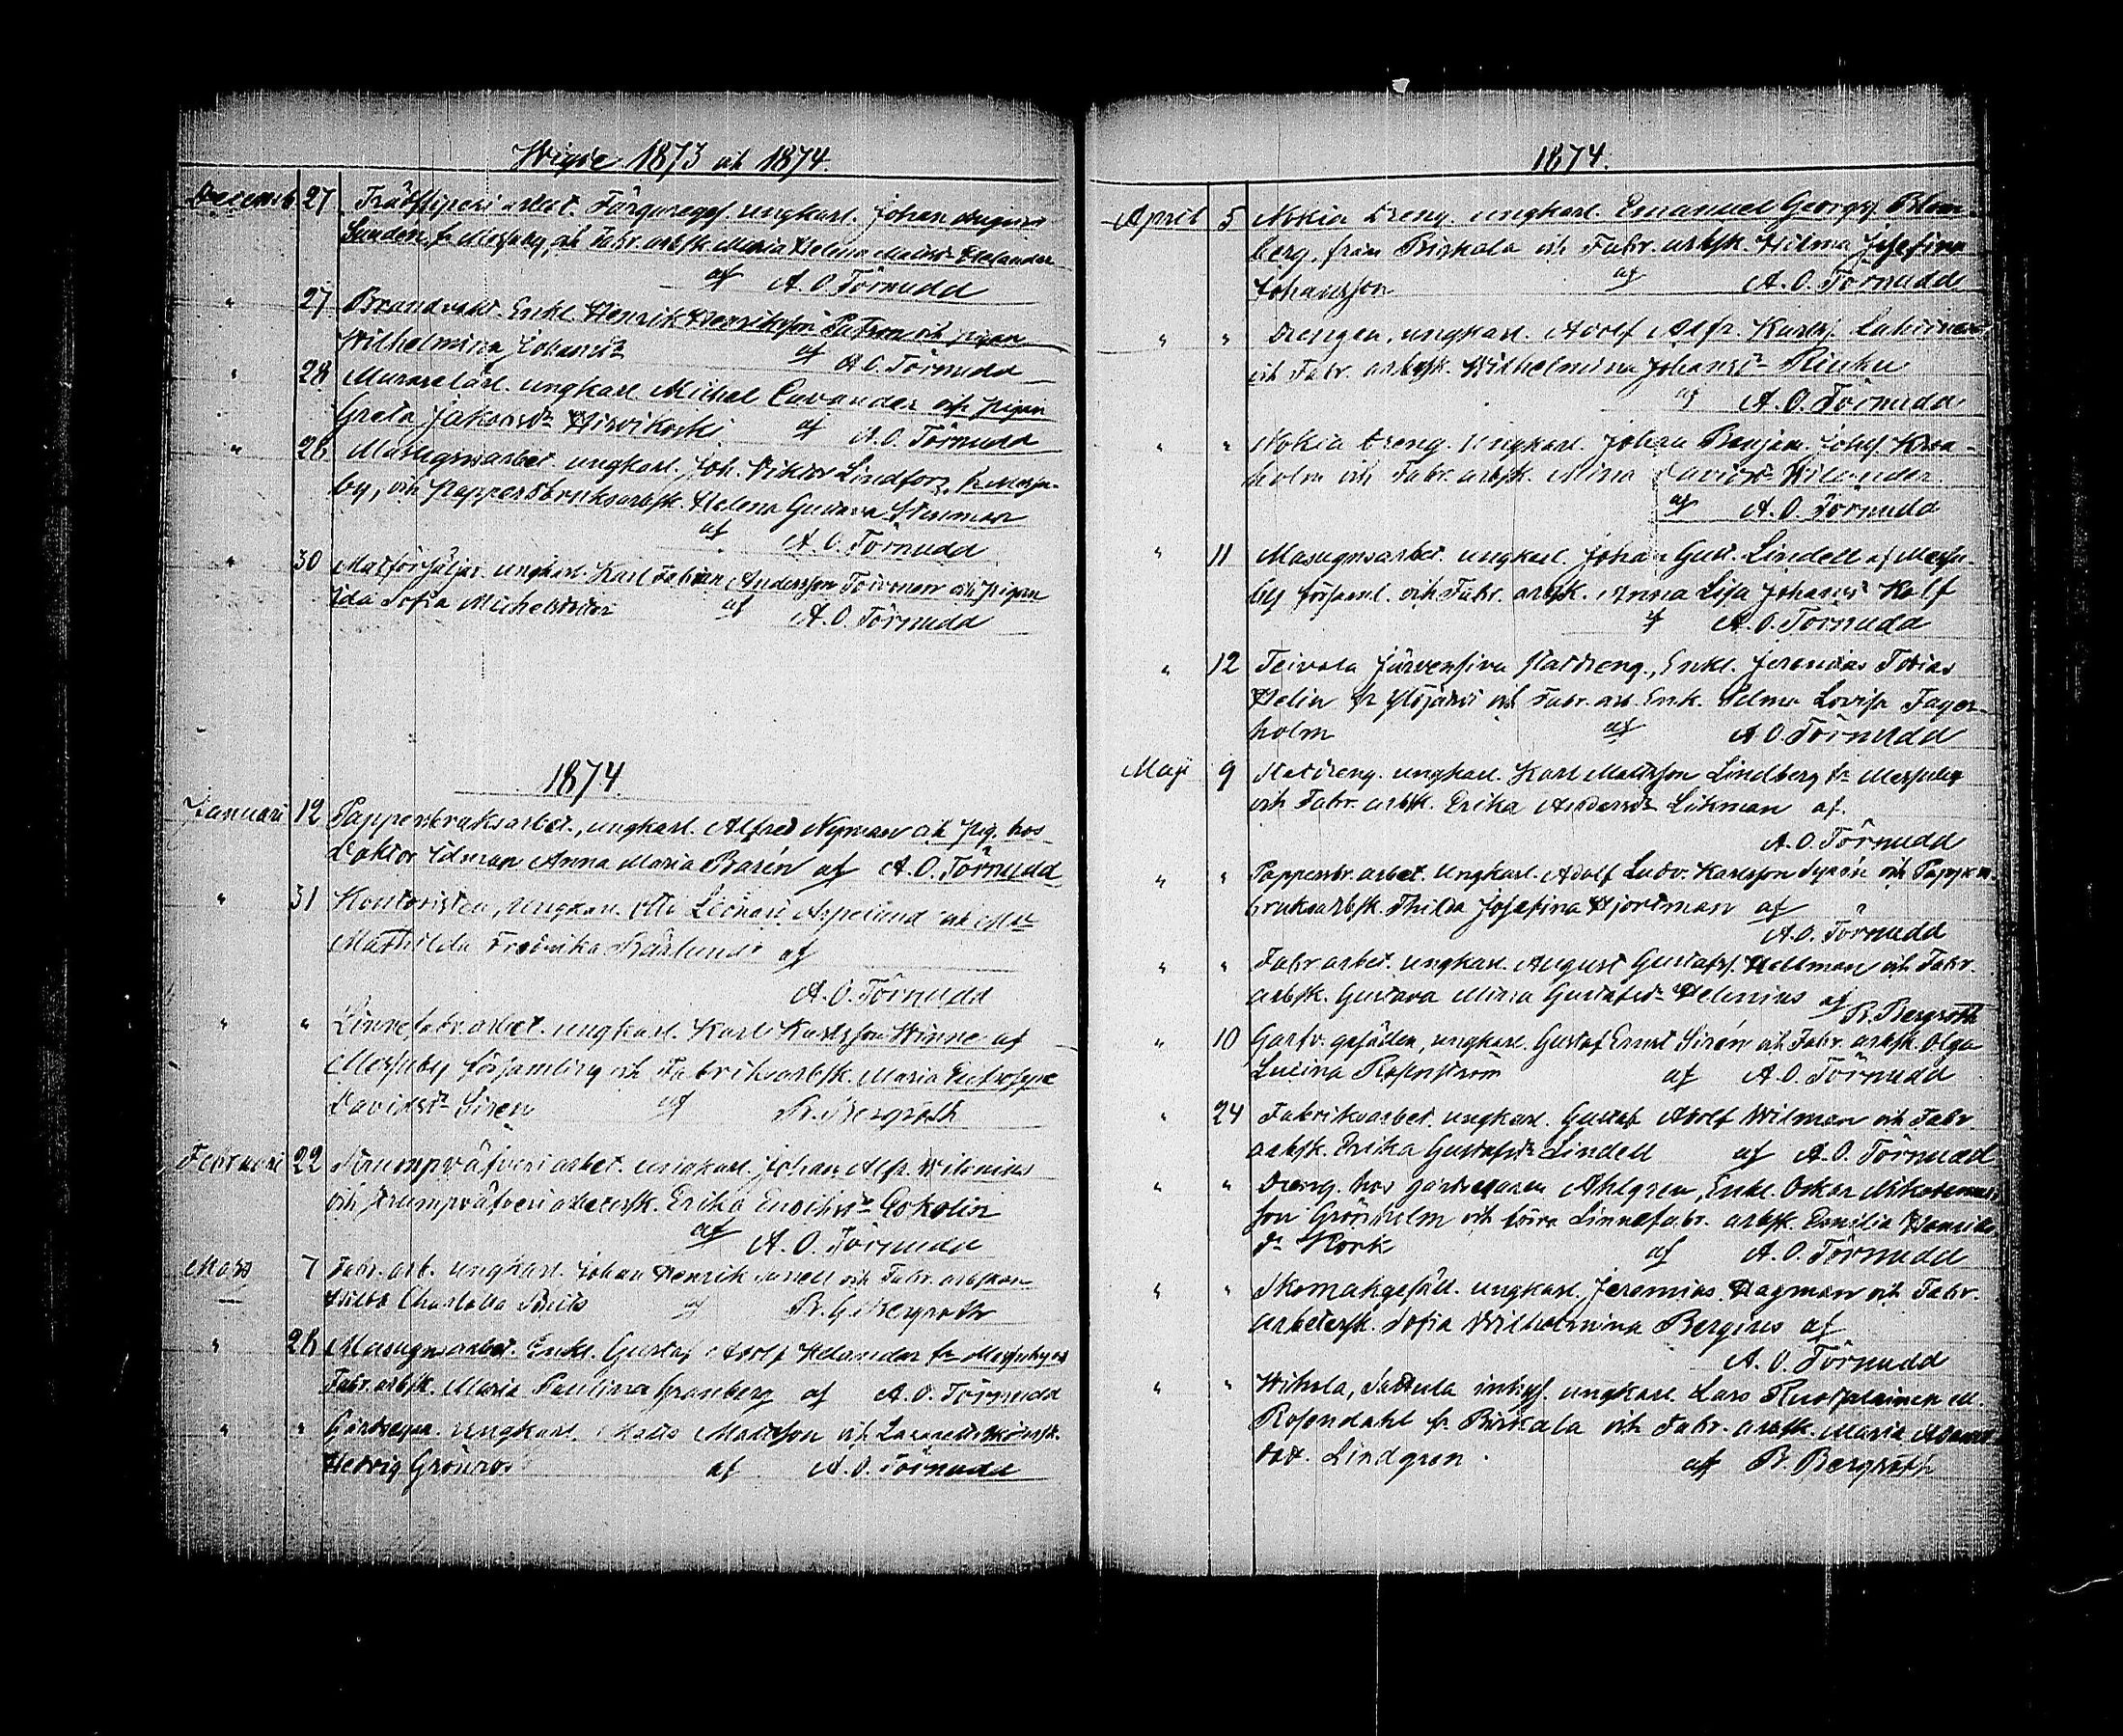 Wigde 1873 och 1874.
Decemb 27 Trädssliperi arbet. Färgaregess. ungkarl. Johan August
Sunden fr Messuby, och Fabr. arbsk. Maria Helena Mattsdr Helander
af A. O. Törnudd
" 27 Brandvakt. Enkl. Henrik Henriksson Patron och pigan
Wilhelmina Johansdr af A. O. Törnudd
" 28 Murarelärl. ungkarl Michel Cavander och pigan
Greta Jakobsdr Hirvikoski af A. O. Törnudd
" 28 Masugnsarbet. ungkarl. Joh. Viktor Lindfors, fr Messu-
by, och Pappersbruksarbsk. Helena Gustava Stenman
af A. O. Törnudd
" 30 Matförsäljar. ungkarl. Karl Fabian Andersson Toivonen och pigan
Ida Sofia Michelsdotter af A. O. Törnudd
1874.
Januari 12 Pappersbruksarbet., ungkarl. Alfred Nyman och pig. hos
Doktor Idman Anna Maria Barén af A. O. Törnudd
" 31 Kontoristen, ungkarl. Otto Leonard Aspelund och
Mathilda Fredrika Kärlund af
A. O. Törnudd
" " Linnefabr. arbet. ungkarl. Karl Karlsson Winne af
Messuby församling och Fabriksarbsk. Maria
Davidsdr Siren af R. Bergroth
Februari 22 Strumpväfveri arbet. ungkarl. Johan Alfr. Wilenius
och strumpväfveri arbetersk. Erika
af A. O. Törnudd
Mars 7 Fabr. arb. ungkarl. Johan Henrik och Fabr. arbskan
Charlotta af R. G. Bergroth
" 28 Masugnsarbet. Enkl. Gustaf Adolf Helander fr Messuby och
Fabr. arbsk. Maria Paulina Granberg af A. O. Törnudd
" " Gårdsegar. ungkarl. Matts Mattsson och Lazarettsskötersk.
Hedvig Grönros af A. O. Törnudd
1874.
April 5 Nokia dreng. ungkarl. Emanuel Georgsf. Blom-
berg, från Birkala och Fabr. arbsk. Hilma Josefina
Johansson af A. O. Törnudd
" " Drengen, ungkarl. Adolf Alfr. Karlsf.
och Fabr. arbsk. Wilhelmina Johansdr
af A. O. Törnudd
" " Nokia dreng. Ungkarl. Johan Benjam. Johsf.
holm och Fabr. arbsk. Mina Davidsdr Kilander
af A. O. Törnudd
" 11 Masugnsarbet. ungkarl. Johan Gust. Lindell af Messu-
by församl. och Fabr. arbsk. Anna Lisa Johansdr Kalf
af A. O. Törnudd
" 12 Teivala Järvensivu statdreng., Enkl. Jeremias Tobias
Helin fr Ylöjärvi och Fabr. arb. Enk. Selma Lovisa Fager-
holm af A. O. Törnudd
Maji 9 Statdreng. ungkarl. Karl Mattsson Lindberg fr Messuby
och Fabr. arbsk. Erika Andersdr Likman af.
A. O. Törnudd
" " Pappersbr. arbet. Ungkarl. Adolf Ludv. Karlsson Syrén och Pappers-
bruksarbsk. Thilda Josefina Hjortman af
A. O. Törnudd
" " Fabr arbet. ungkarl. August Gustafsf. Hellman och Fabr.
arbsk. Gustava Maria Gustafsdr Helenius af R. Bergroth
" 10 Garfv. gesällen, ungkarl. Gustaf Ernst Sirén och Fabr. arbsk. Olga
Lucina Rosenström af A. O. Törnudd
" 24 Fabriksarbet. ungkarl. Gustaf Adolf Wilman och Fabr.
arbsk. Erika Gustafsdr Lindell af A. O. Törnudd
" " Dreng. hos gårdsegaren Ahlgren, Enkl. Oskar Nikodemus-
son Grönholm och förra Linnefabr. arbsk. Emilia Henriks-
dr Kork af A. O. Törnudd
" " Skomakgesäll. ungkarl. Jeremias Hagman och Fabr.
arbetersk. Sofia Wilhelmina Bergius af
A. O. Törnudd
" " Wihola, Sattula inhys. ungkarl. Lars
Rosendahl fr Birkala och Fabr. arbsk. Maria Adams-
dot. Lindgren. af R. Bergroth